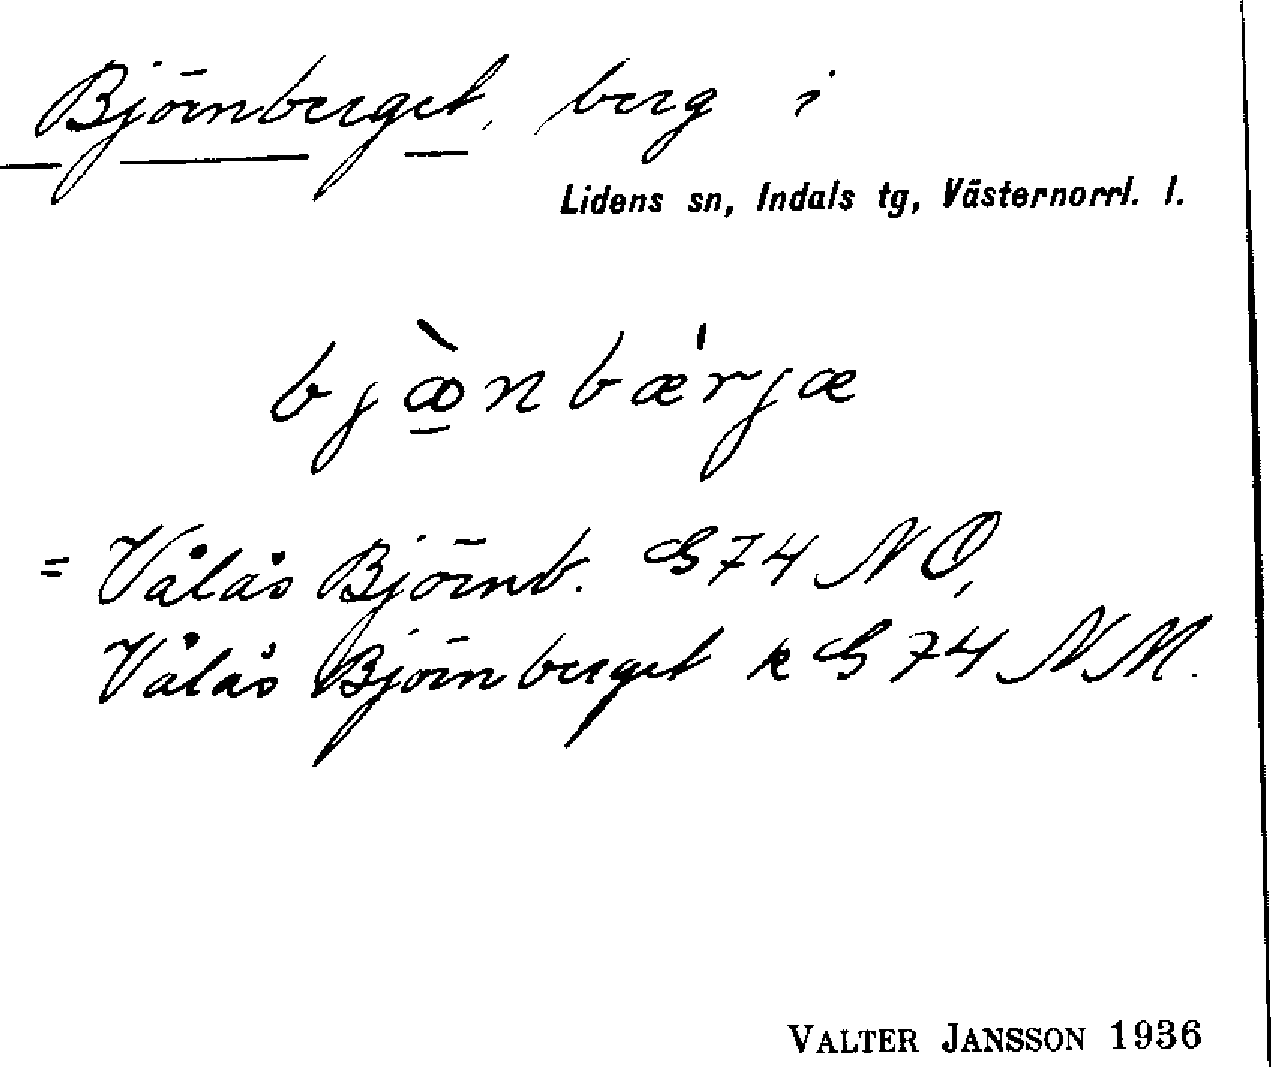 Björnberget, berg i
Lidens sn, Indals tg, Västernorrl. l.
bjæ̀nbæ'rjæ
= Vålås Björnb. G74 NO,
Vålås Björnberget k G74 NM.
VALTER JANSSON 1936